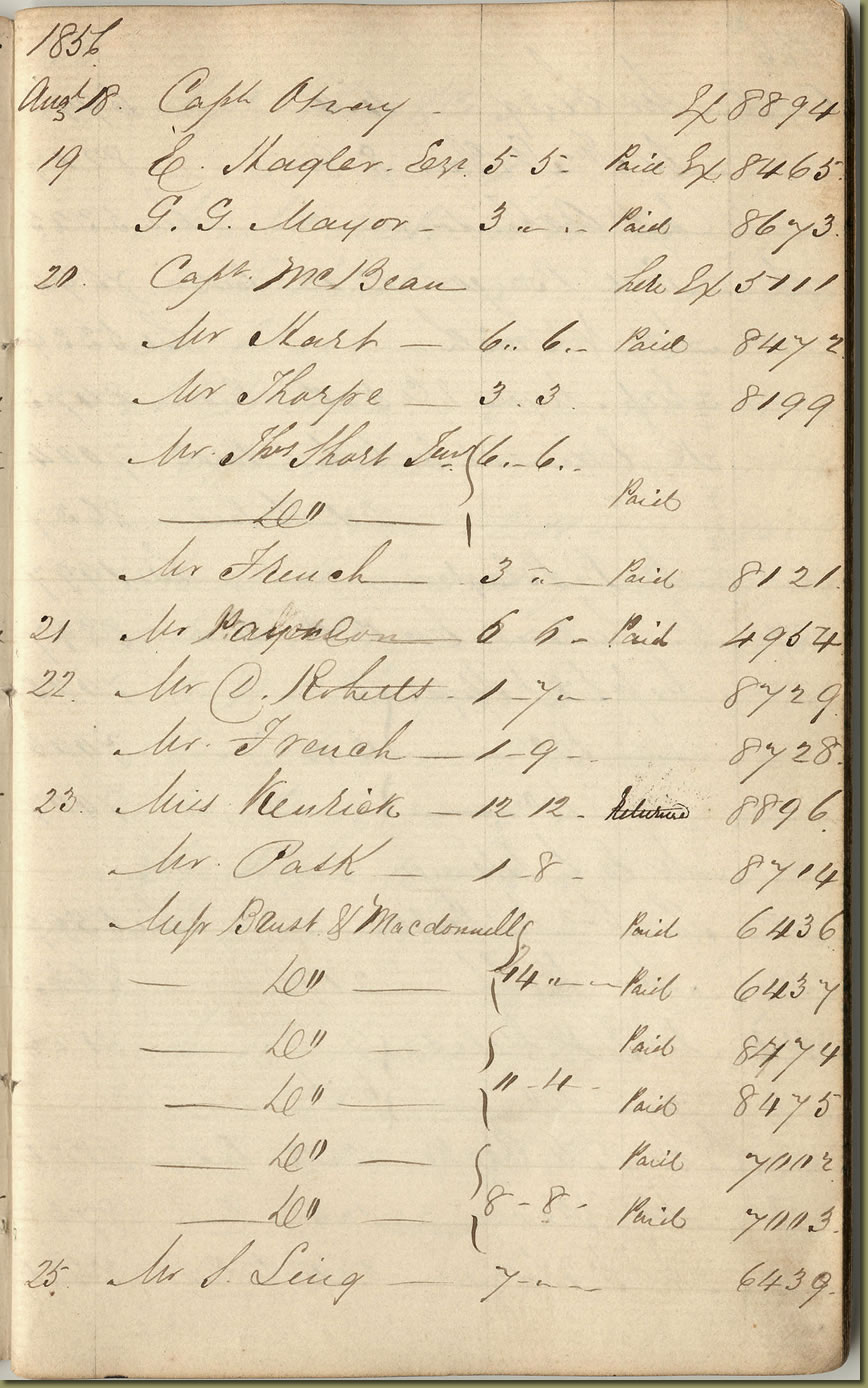 1856
Augt 18. Capt Otway - Ex 8894
19 E. Hagler. Esqr. 5 5- Paid Ex 8465.
G. G. Mayor - 3 „ „ - Paid 8673.
20. Capt. McBean Ex 5111
Mr Hart — 6.. 6.- Paid 8472
Mr Thorpe — 3. 3. 8199
Mr. Thos Short Junr 6.- 6.-
— Do" — Paid
Mr French — 3 „ — Paid 8121.
21 Mr 6 6 - Paid 4954
22. Mr C. Roberts - 1 - 7 „ - 8729
Mr. French — 1 - 9 - 8728.
23. Miss Kenrick — 12 12 - Returned 8896.
Mr. Pask — 1 - 8 - 8714
Messr Beust & Macdonnell Paid 6436
— Do" — 14 „ — Paid 6437
— Do" — Paid 8474
— Do" — 11 - 11 - Paid 8475
— Do" — Paid 7002
— Do" — 8 - 8 - Paid 7003.
25. Mr S. Ling — 7 - „ — 6439.